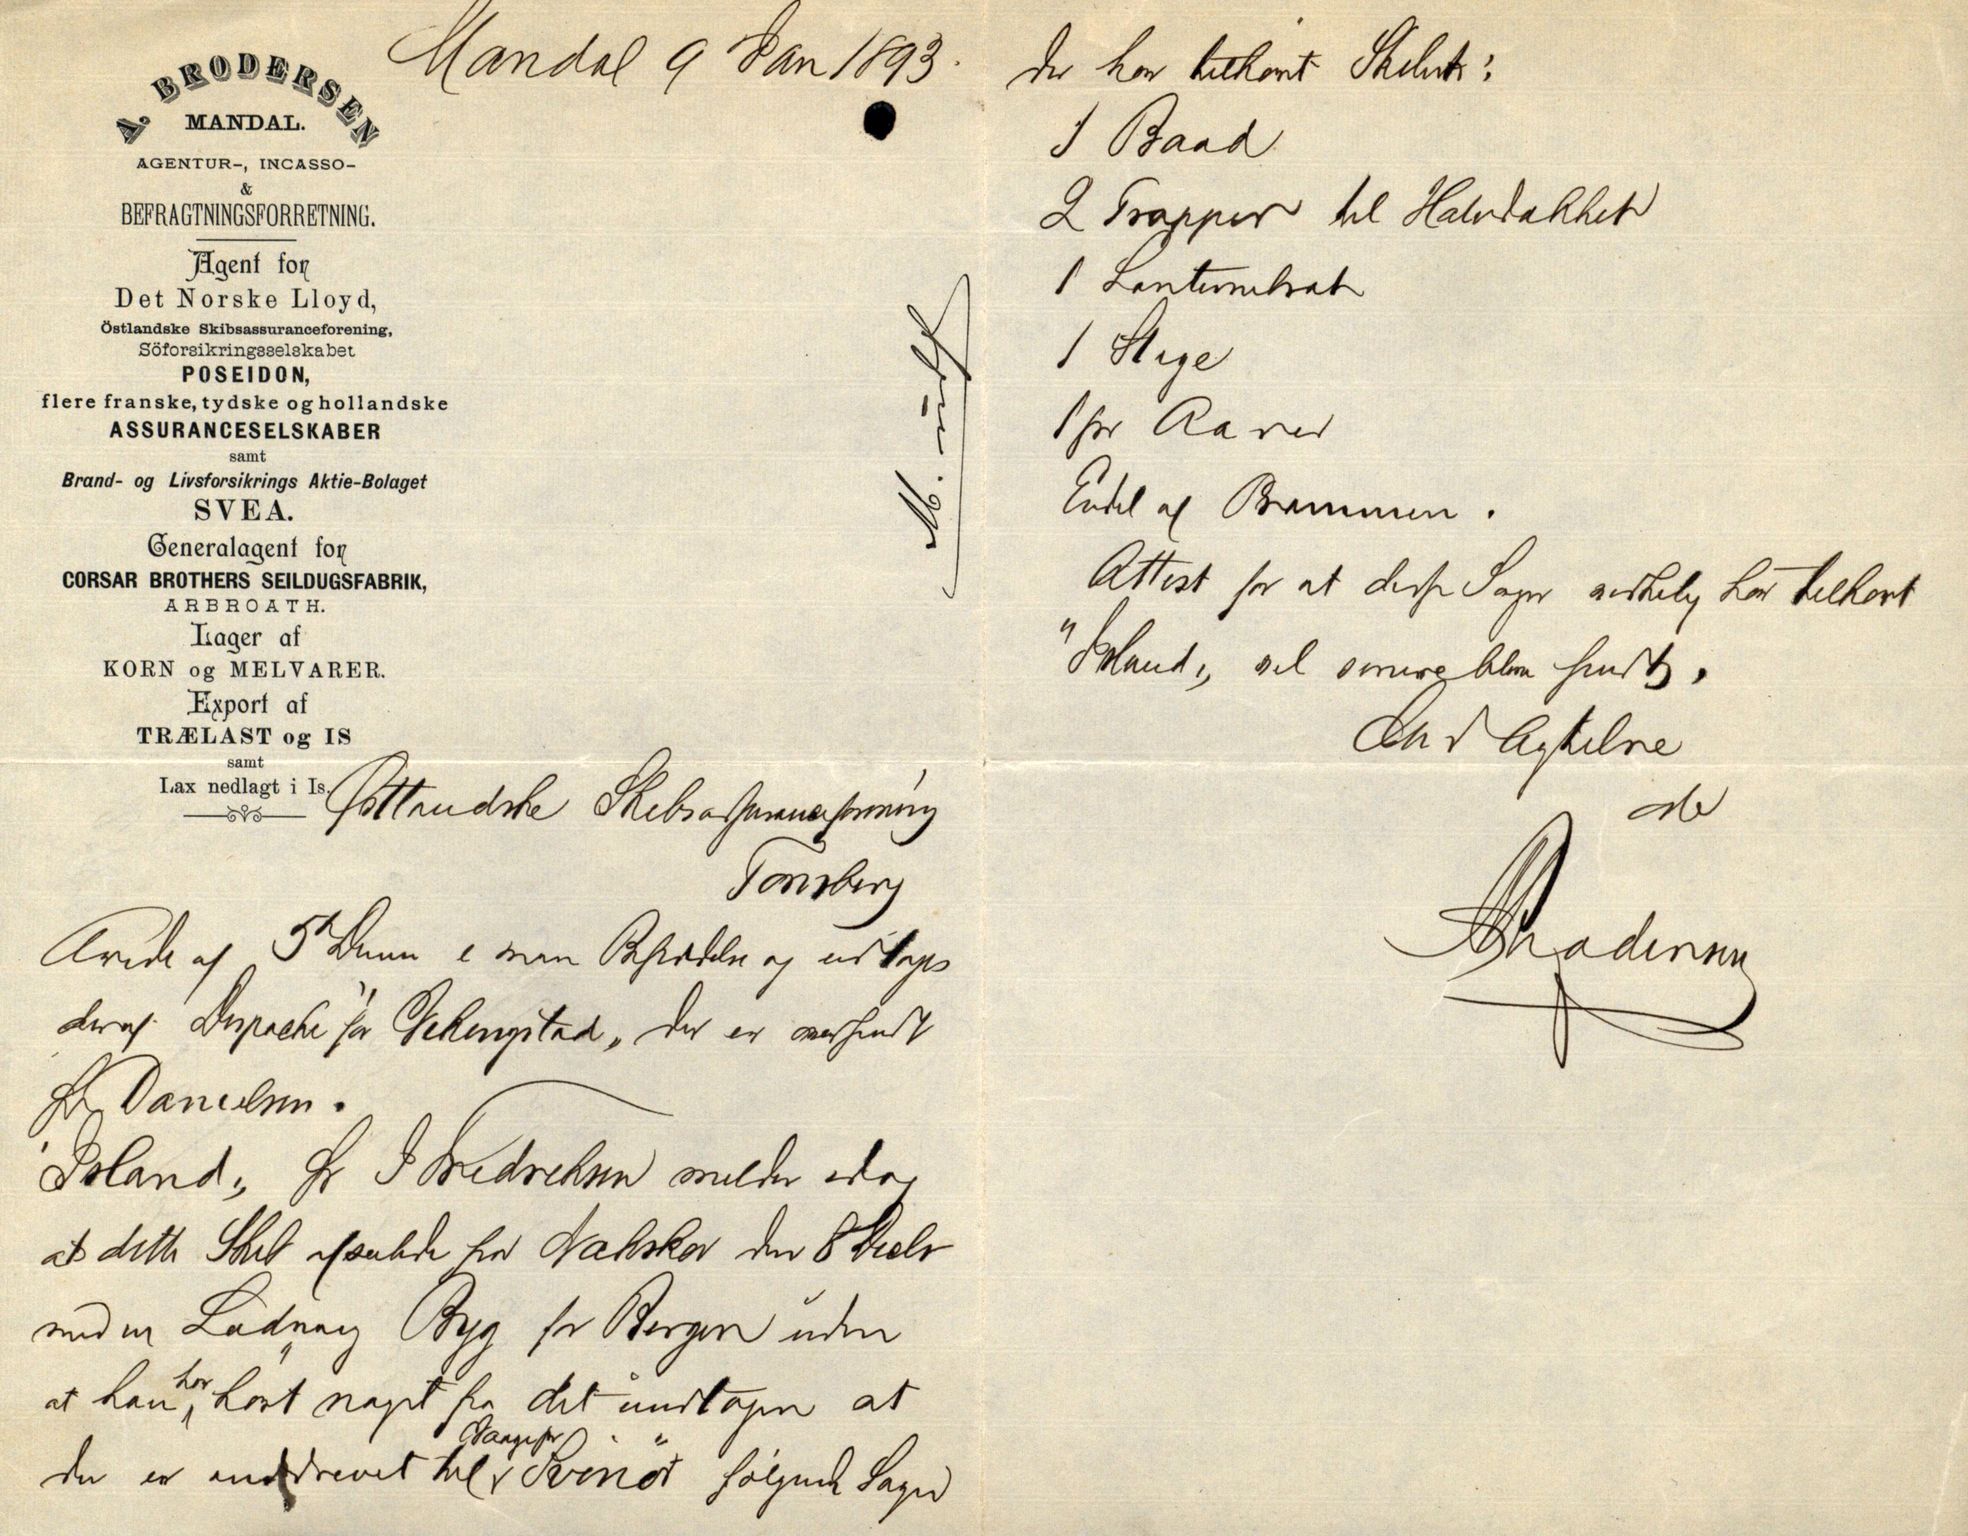 Mandal 9 Jan 1893.
A. BRODERSEN
MANDAL.
AGENTUR-, INCASSO-
&
BEFRAGTNINGSFORRETNING.
Agent for
Det Norske Lloyd,
Östlandske Skibsassuranceforening,
Söforsikringsselskabet
POSEIDON,
flere franske, tydske og hollandske
ASSURANCESELSKABER
samt
Brand- og Livsforsikrings Aktie-Bolaget
SVEA.
Generalagent for
CORSAR BROTHERS SEILDUGSFABRIK,
ARBROATH.
Lager af
KORN og MELVARER.
Export af
TRÆLAST og IS
samt
Lax nedlagt i Is.
Østlandske Skibsassuranceforening
Tønsberg
Ærede af 5t Dennes i min Besiddelse og udtages
deraf Dispache for Vikingstad„ der er
Danielsen.
Island„ J Fredriksen melder idag
at dette Skib afseilede fra Nakskov den 8 Decbr
med en Ladning Byg for Bergen uden
at han har hørt noget fra det undtagen at
der er inddrevet til Svinör følgende Sager
der har tilhørt Skibet:
1 Baad
2 Trapper til Halvdækket
1 Lanternebræt
1 Stige
1 pr Aarer
Endel af Brammen.
Attest for at disse Sager virkelig har tilhørt
"Island„ vil senere blive sendt.
Med Agtelse
ABrodersen